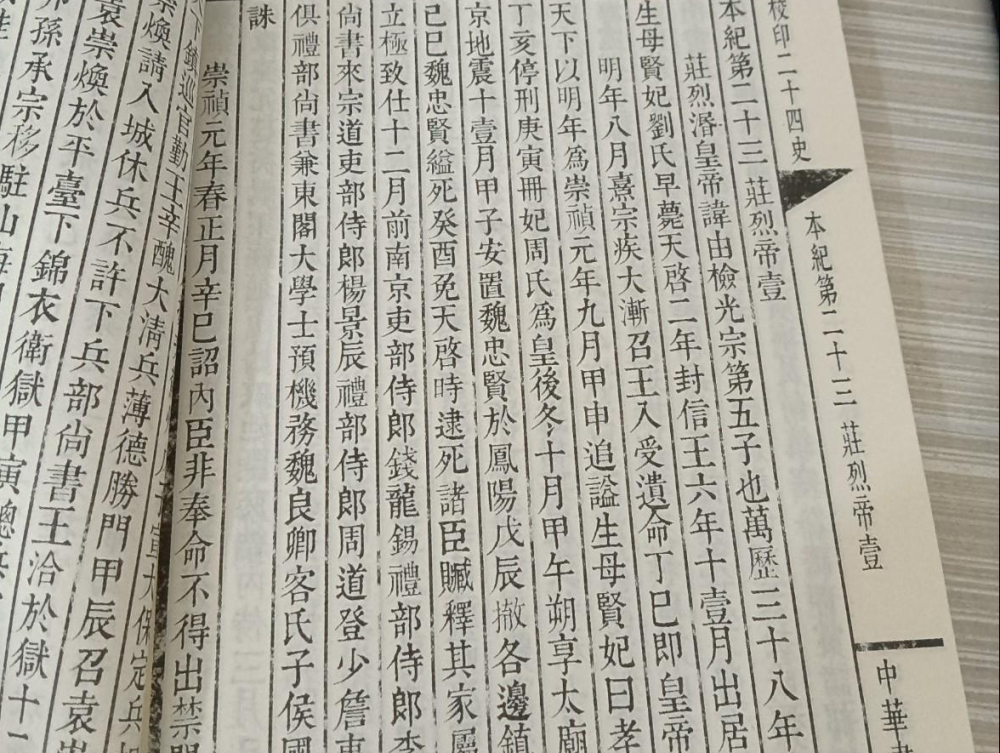 校印二十四史
本紀第二十三 莊烈帝壹
中華
本紀第二十三 莊烈帝壹
莊烈湣皇帝諱由檢光宗第五子也萬歷三十八年
生母賢妃劉氏早薨天啓二年封信王六年十壹月出居
明年八月熹宗疾大漸召王入受遺命丁巳即皇帝
天下以明年為崇禎元年九月甲申追諡生母賢妃曰孝
丁亥停刑庚寅冊妃周氏為皇後冬十月甲午朔享太廟
京地震十壹月甲子安置魏忠賢於鳳陽戊辰撤各邊鎮
己巳魏忠賢縊死癸酉免天啓時逮死諸臣贓釋其家屬
立極致仕十二月前南京吏部侍郎錢龍錫禮部侍郎李
尚書來宗道吏部侍郎楊景辰禮部侍郎周道登少詹事
俱禮部尚書兼東閣大學士預機務魏良卿客氏子侯國
誅
崇禎元年春正月辛巳詔內臣非奉命不得出禁門
下鎮巡官勤王辛醜大清兵薄德勝門甲辰召袁
宣大保定兵
崇煥請入城休兵不許下兵部尚書王洽於獄十
袁崇煥於平臺下錦衣衛獄甲寅總兵
孫承宗移駐山海